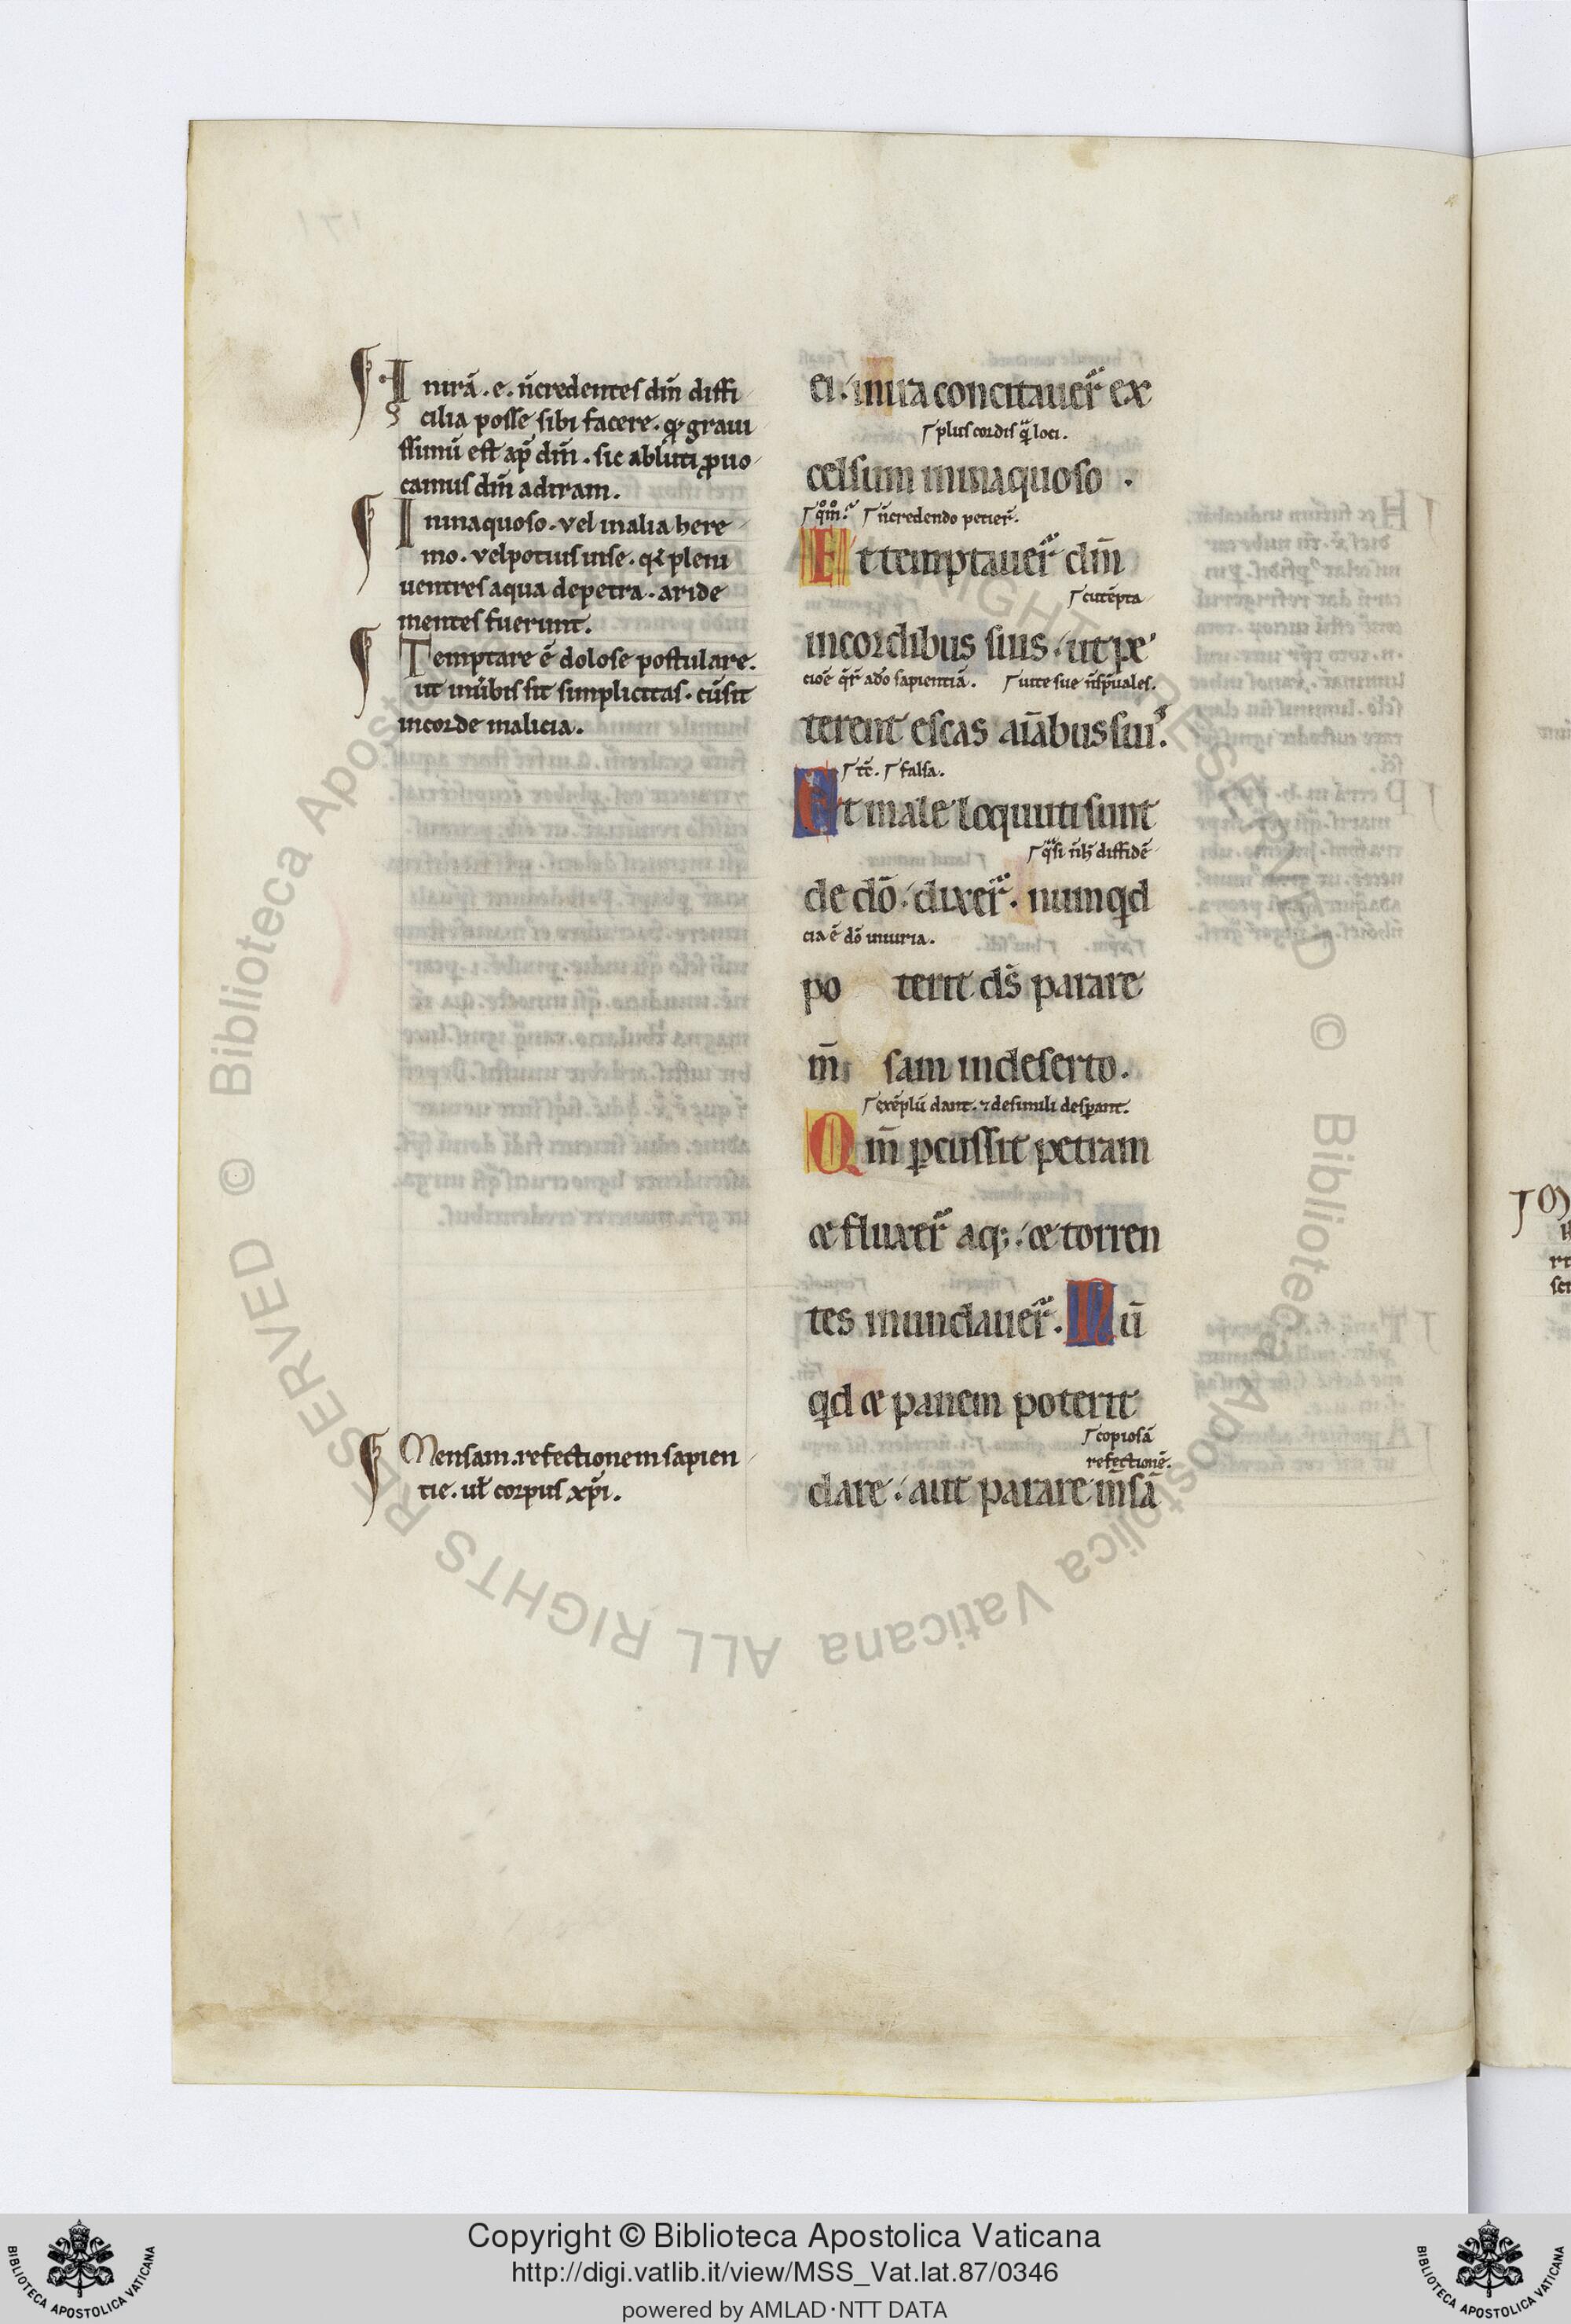 In irã .e. ñ credentes dm̃ diffi
cilia posse sibi facere. qđ graui
ssimũ est ap̃ dm̃. sic abluti ꝓuo
camus dm̃ ad iram.
In inaquoso. vel in alia here
mo. vel potius in se. qꝛ pleni
uentres aqua de petra. aride
mentes fuerunt.
Temptare ẽ dolose postulare.
ut in u̇bis sit simplicitas. cũ sit
in corde malicia.
Mensam. refectionem sapien
tie. ul̵ corpus xp̃i.
ei. in ira concitauer̃ ex
plus cordis quã loci.
celsum in inaquoso.
qm̃. ñ credendo petier̃.
Et temptauer̃ dm̃
cũ tẽpta
in cordibus suis. ut pe
cioẽ q̃r̃ a dõ sapientiã. uite sue ñ sp̃uales.
terent escas aĩabus sui᷒.
⁊c̃. falsa.
Et male loquuti sunt
q̃si ñ ẖ diffidẽ
de dõ. dixer̃. numqd
cia ẽ dõ iniuria.
poterit ds̃ parare
m̃sam in deserto.
exẽplũ dant. ⁊ de simili desꝑant.
Qm̃ ꝑcussit petram
et fluxer̃ aq;. et torren
tes inundauer̃. Nũ
qd et panem poterit
copiosã
refectionẽ.
dare. aut parare m̃sã
Copyright © Biblioteca Apostolica Vaticana
http://digi.vatlib.it/view/MSS_Vat.lat.87/0346
powered by AMLAD·NTT DATA
BIBLIOTECA APOSTOLICA VATICANA
BIBLIOTECA APOSTOLICA VATICANA
© Biblioteca Apostolica Vaticana ALL RIGHTS RESERVED